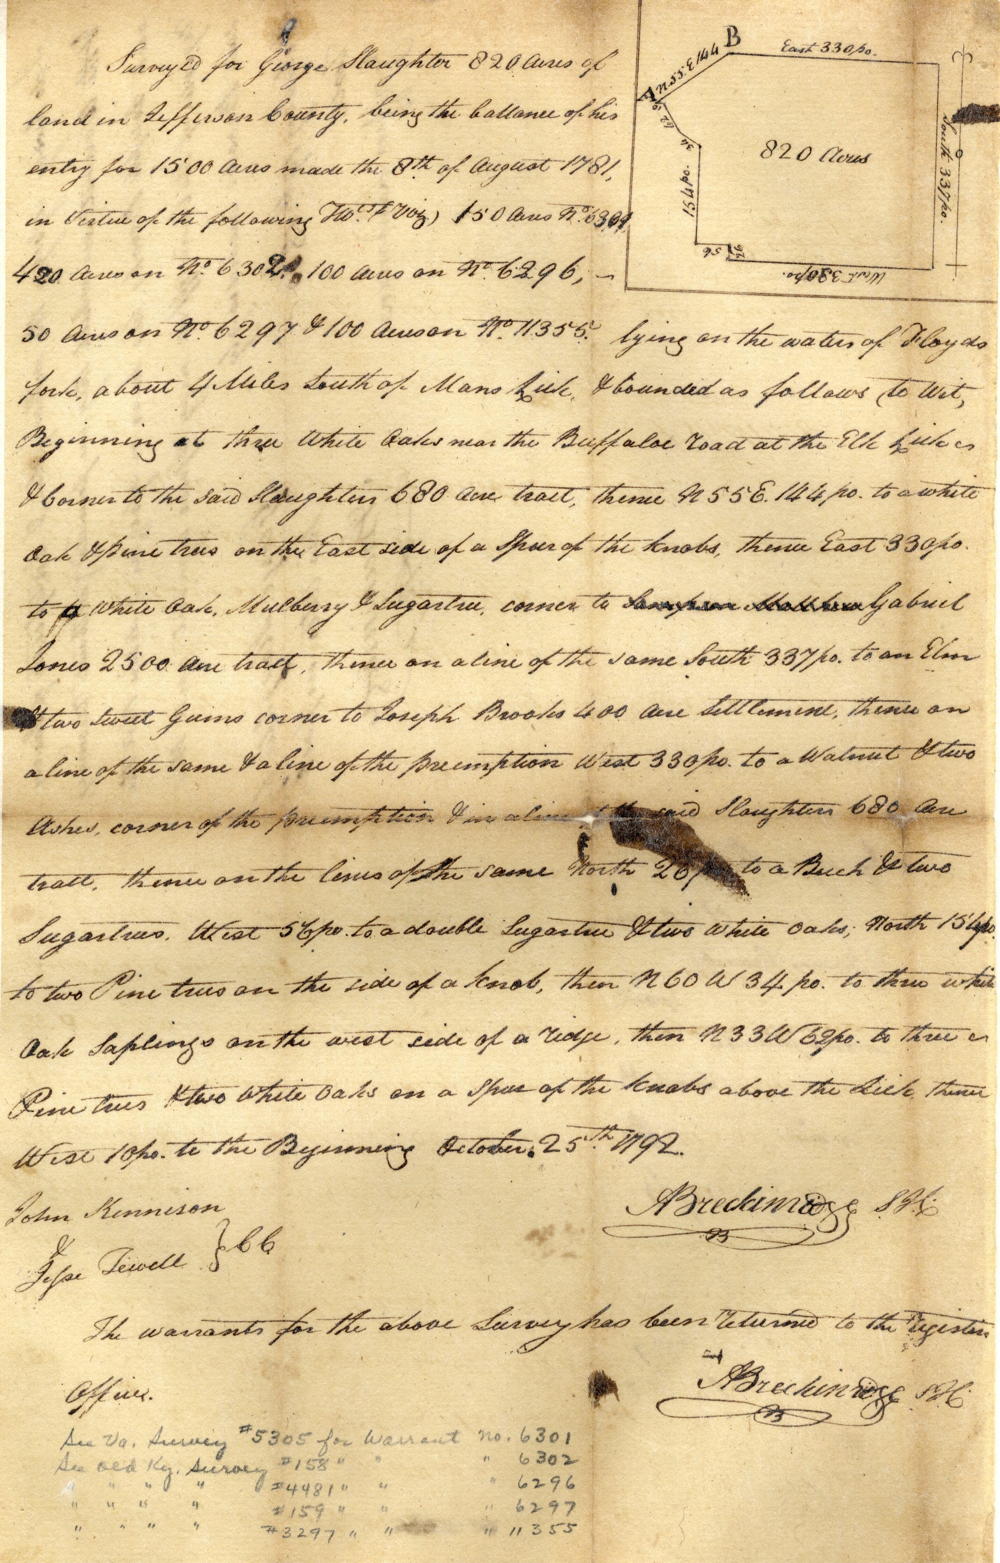 Surveyed for George Slaughter 820 Acres of
land in Jefferson County, being the ballance of his
entry for 1500 Acres made the 8th of August 1781,
in Virtue of the following Viz) 150 Acres No. 6301
420 Acres on No. 6302. 100 Acres on No. 6296, —
50 Acres on No. 6297 & 100 Acres on No. 11355. lying on the waters of Floyds
fork, about 4 Miles South of Mans Lick, & bounded as follows (to Wit,
Beginning at three White Oaks near the Buffaloe road at the Elk Lick
& Corner to the said Slaughters 680 acre tract, thence N 55 E. 144 po. to a white
Oak & Pine trees on the East side of a Spur of the knobs, thence East 330 po.
to White Oak, Mulberry & Sugartree, corner to Gabriel
Jones 2500 acre tract, thence on a line of the same South 337 po. to an Elm
& two Sweet Gums corner to Joseph Brooks 400 acre Settlement, thence on
a line of the same & a line of the preemption West 330 po. to a Walnut & two
Ashes, corner of the preemption & in a line said Slaughters 680 acre
tract, thence on the lines of the same North 26 to a Beech & two
Sugartrees, West 56 po. to a double Sugartree & two white Oaks, North 151 po.
to two Pine trees on the side of a knob, then N 60 W 34 po. to three white
Oak Saplings on the west side of a ridge, then N 33 W 62 po. to three
Pine trees & two white Oaks on a Spur of the knobs above the Lick thence
West 10 po. to the Beginning October, 25th 1792.
John Kennison
&
Jesse Tewell } CC
ABreckinridge SJC
B
The warrants for the above Survey has been returned to the registers
Office.
ABreckinridge SJC
B
See Va. Survey #5305 for Warrant no. 6301
See old Ky. Survey #158 " " " 6302
" " " " #4481 " " " 6296
" " " " #159 " " " 6297
" " " " #3297 " " " 11355
A
N 55 E 144
B
East 330 po.
South 337 po.
West 330 po.
26
56
151 po.
34
62
820 Acres